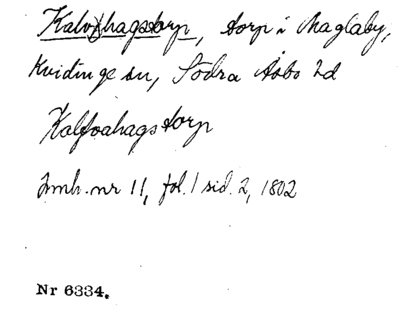 Kalvhagstorp, torp i Maglaby,
Kvidinge sn, Södra Åsbo hd
Kalfvahagstorp
Imh. nr 11, fol. 1 sid. 2, 1802
Nr 6334.